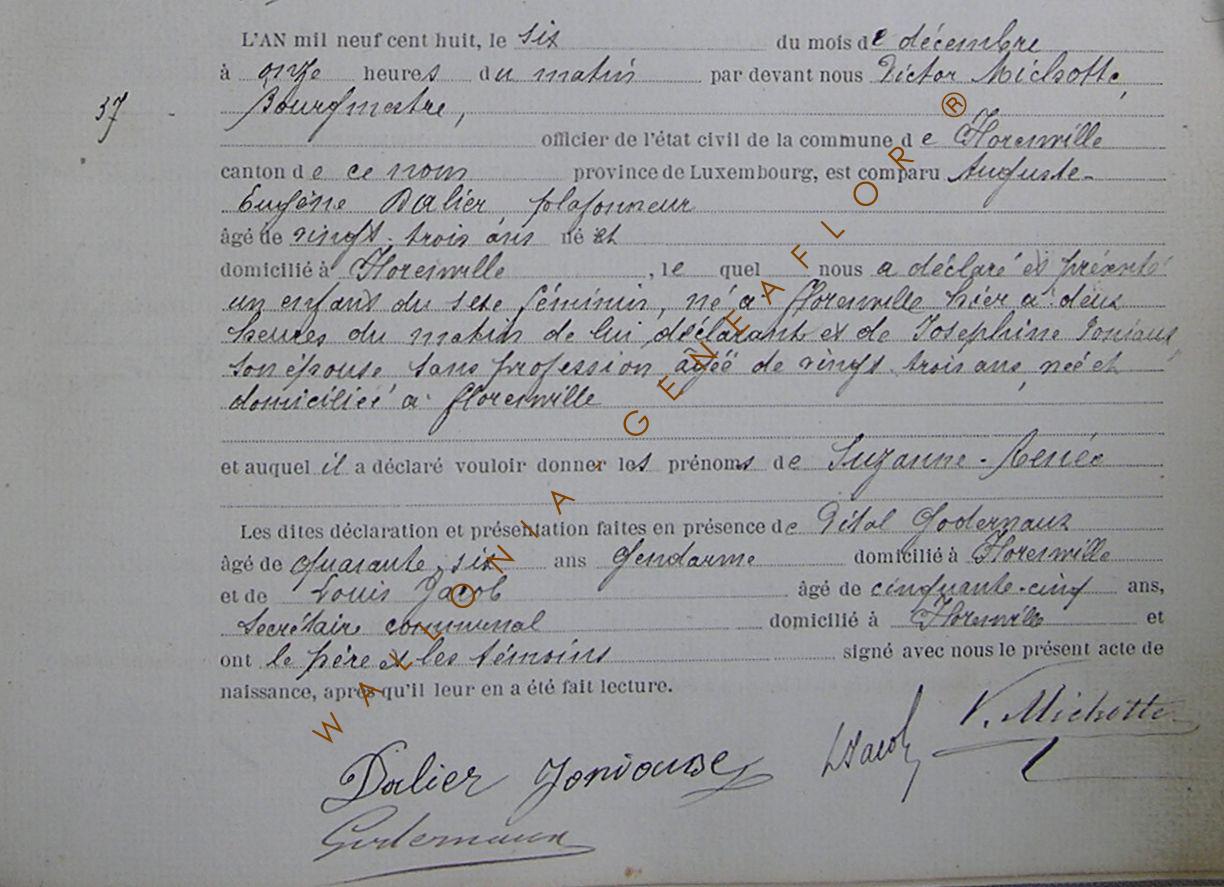 L'AN mil neuf cent huit, le six du mois de décembre
à onze heures du matin par devant nous Victor Michotte,
37 - Bourgmestre,
officier de l'état civil de la commune de Florenville
canton de ce nom province de Luxembourg, est comparu Auguste-
Eugène Dalier, plafonneur
âgé de vingt-trois ans né et
domicilié à Florenville, le quel nous a déclaré et présenté
un enfant du sexe féminin, né à Florenville hier à deux
heures du matin de lui déclarant et de Joséphine
son épouse sans profession âgée de vingt-trois ans, née et
domiciliée à Florenville
et auquel il a déclaré vouloir donner les prénoms de Suzanne-Renée
Les dites déclaration et présentation faites en présence de Vital Godernaux
âgé de quarante-six ans Gendarme domicilié à Florenville
et de Louis Jacob âgé de cinquante-cinq ans,
secrétaire communal domicilié à Florenville et
ont le père et les témoins signé avec nous le présent acte de
naissance, après qu'il leur en a été fait lecture.
V. Michotte
LJacob
Dalier
Godernaux
WALLONIA GENEAFLOR ®